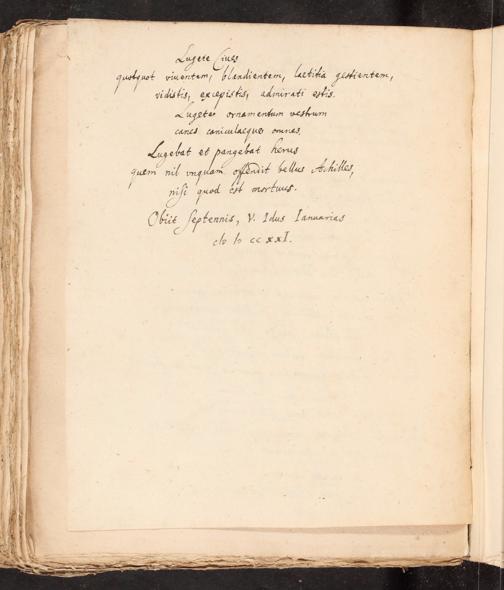 Lugete Cives
quotquot viventem, blandientem, laetitiâ gestientem,
vidistis, excepistis, admirati estis.
Lugete ornamentum vestrum
canes caniculaeque omnes.
Lugebat et pangebat herus
quem nil vnquam offendit bellus Achilles,
nisi quod est mortuus.
Obiit septennis, V. Idus Ianuarias
cIɔ Iɔ cc xxI.